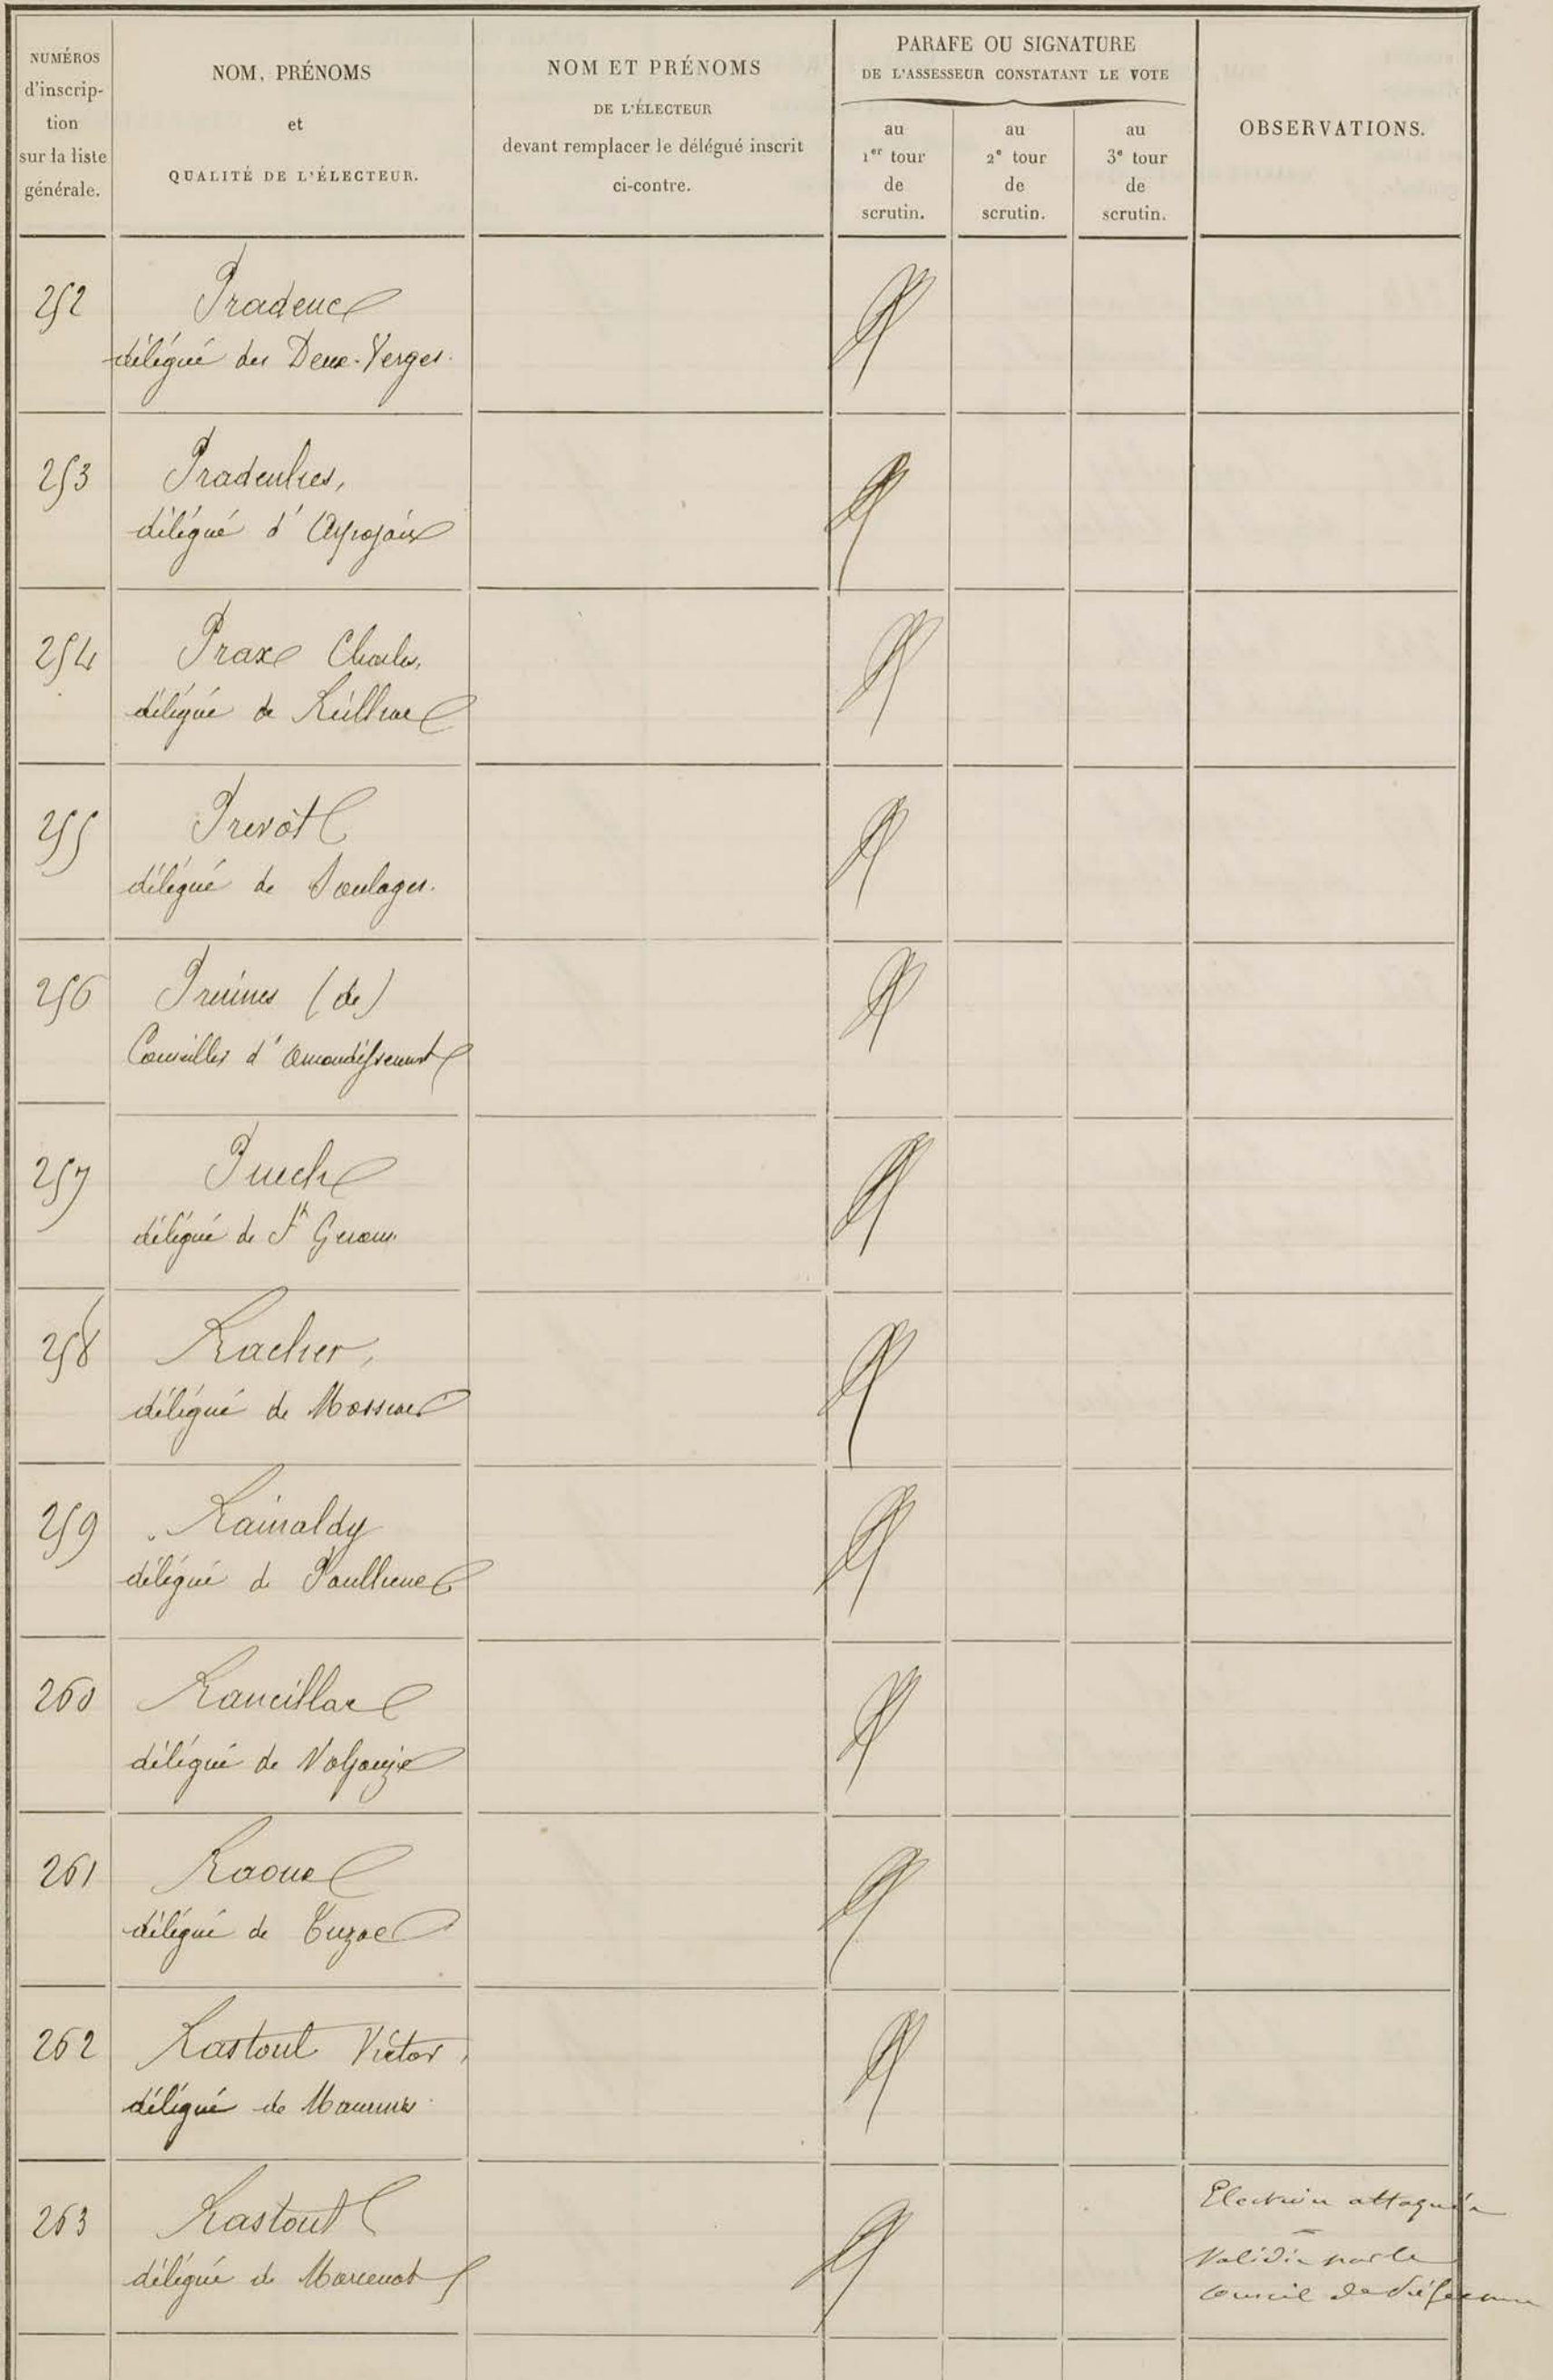 NUMÉROS
d'inscrip-
tion
sur la liste
générale.
NOM, PRÉNOMS
et
QUALITÉ DE L'ÉLECTEUR.
NOM ET PRÉNOMS
DE L'ÉLECTEUR
devant remplacer le délégué inscrit
ci-contre.
PARAFE OU SIGNATURE
DE L'ASSESSEUR CONSTATANT LE VOTE
au
1er tour
de
scrutin.
au
2e tour
de
scrutin.
au
3e tour
de
scrutin.
OBSERVATIONS.
252
Pradenc
délégué des Deux-Verges.
253
Pradenhes,
délégué d'
254
Prax Charles,
délégué de Reilhac
255
Prevôt
délégué de Soulages.
256
Pruines (de)
Conseiller d'arrondissement
257
Puech
délégué de St Gerons.
258
Racher,
délégué de Massiac
259
Rainaldy
délégué de Paulhenc
260
Rancillac
délégué de Valjouze
261
Raoux
délégué de Cuzac
262
Rastoul Victor,
délégué de Maurines
263
Rastoul
délégué de Marcenat
Election attaquée
Validée par le
Conseil de Préfecture